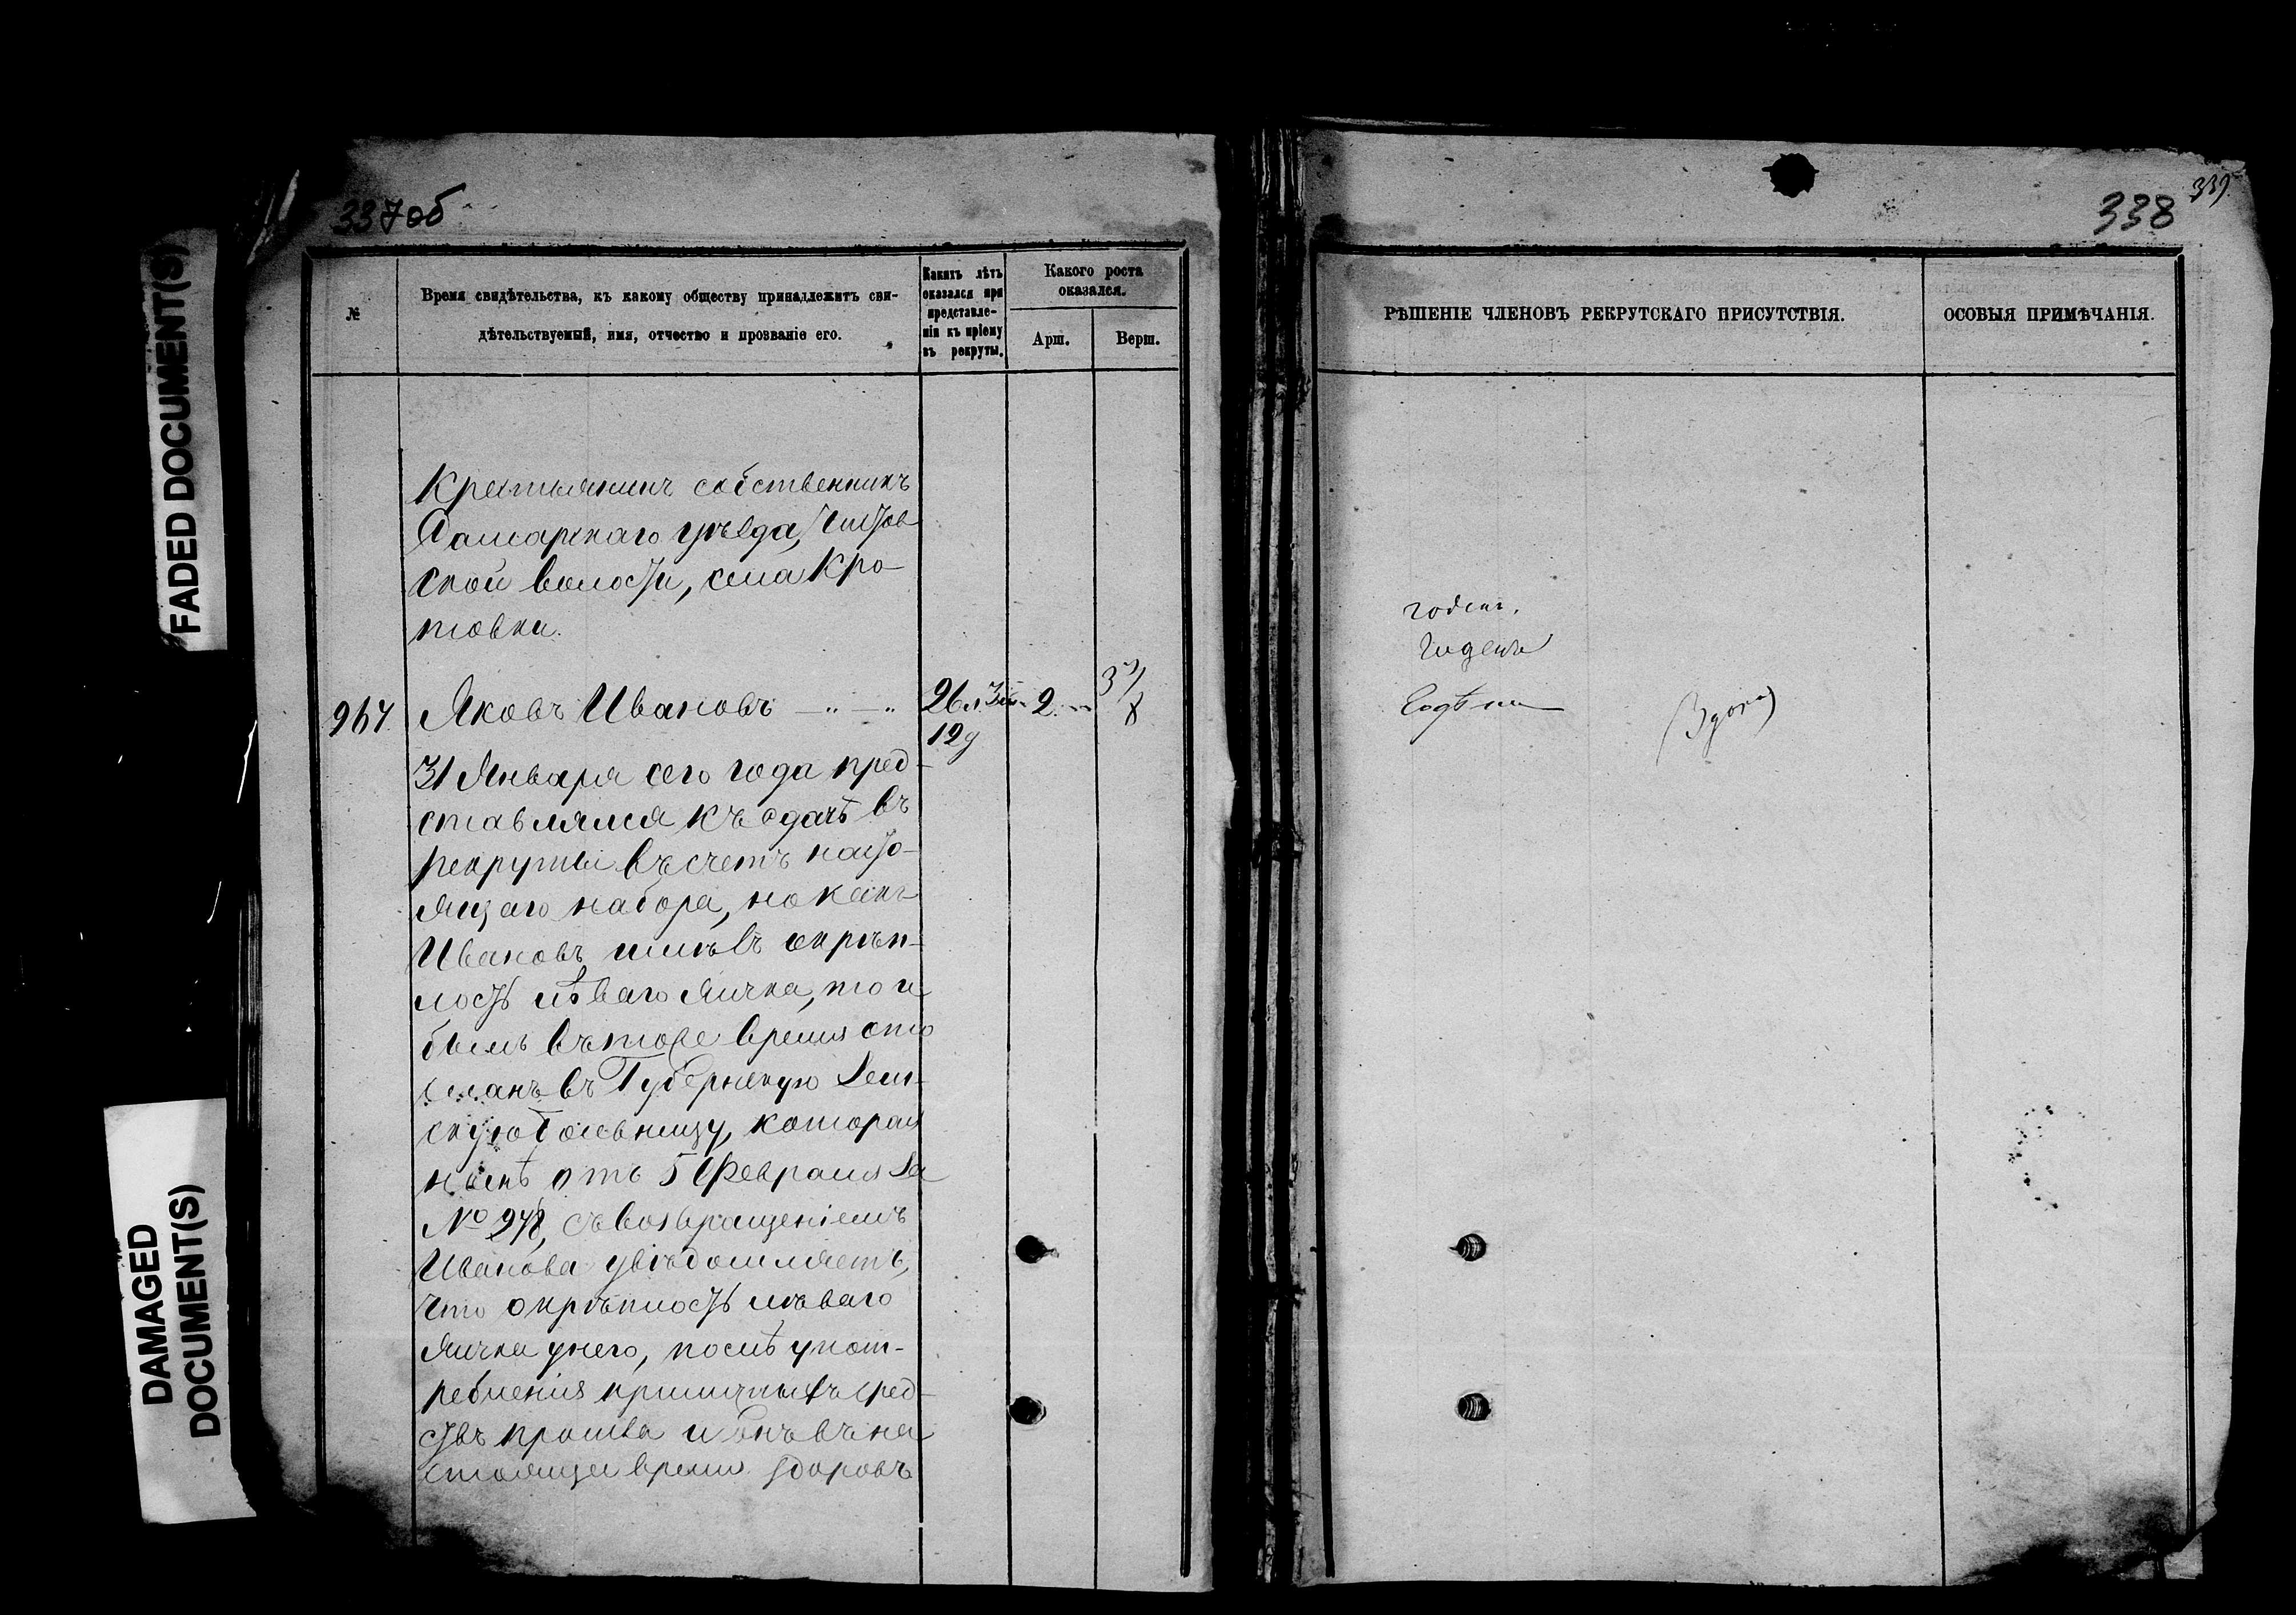 FADED DOCUMENT(S)
DAMAGED
DOCUMENT(S)
337об
№
Время свидѣтельства, къ какому обществу принадлежитъ сви-
дѣтельствуемый, имя, отчество и прозваніе его.
Какихъ лѣтъ
оказался при
представле-
ніи къ пріему
въ рекруты.
Какого роста
оказался.
Арш.
Верш.
Крестьянинъ собственникъ
Самарскаго уѣзда,
ской волости, села Кро-
товки.
967 Яковъ Ивановъ 26 л. 3 м. 2 3 7/8
12 д
31 Января сего года пред-
ставлялся къ сдачѣ въ
рекруты въ счетъ насто-
ящаго набора, но какъ
Ивановъ имѣлъ окрѣп-
лость лѣваго яичка, то и
былъ въ тоже время ото
сланъ въ Губернскую Зем-
скую больницу, которая
нынѣ отъ 5 Февраля за
№ 948, съ возвращеніемъ
Иванова увѣдомляетъ,
что окрѣплость лѣваго
яичка у него, послѣ упот-
ребленія приличныхъ сред-
ствъ прошла и онъ въ на
стоящее время здоровъ
338
339
РѢШЕНІЕ ЧЛЕНОВЪ РЕКРУТСКАГО ПРИСУТСТВІЯ.
ОСОБЫЯ ПРИМѢЧАНІЯ.
годенъ.
Годенъ
Годенъ